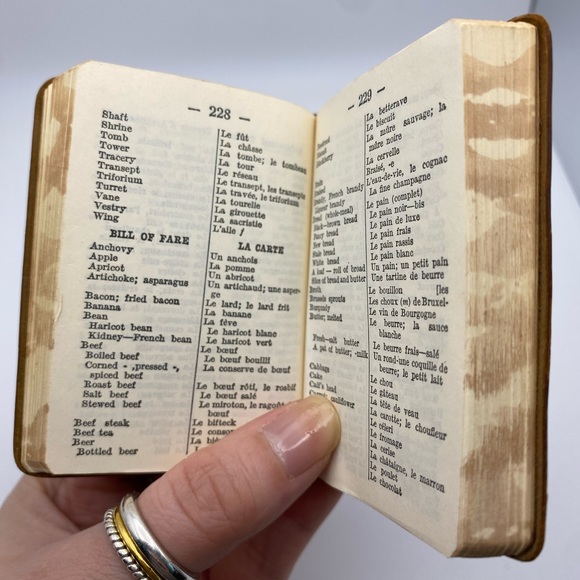 — 228 —
Shaft
Shrine
Tomb
Tower
Tracery
Transept
Triforium
Turret
Vane
Vestry
Wing
Le fût
La châsse
La tombe; le tombeau
La tour
Le réseau
Le transept, les transepts
La travée, le triforium
La tourelle
La girouette
La sacristie
L'aile f
BILL OF FARE
LA CARTE
Anchovy
Apple
Apricot
Artichoke; asparagus
Bacon; fried bacon
Banana
Bean
Haricot bean
Kidney—French bean
Beef
Boiled beef
Corned - ,pressed -,
spiced beef
Roast beef
Salt beef
Stewed beef
Beef steak
Beef tea
Beer
Bottled beer
Un anchois
La pomme
Un abricot
Un artichaud; une asper-
ge
Le lard; le lard frit
La banane
La fève
Le haricot blanc
Le haricot vert
Le bœuf
Le bœuf bouilli
La conserve de bœuf
Le bœuf rôti, le rosbif
Le bœuf salé
Le miroton, le ragoût
bœuf
Le bifteck
Le
La
Le
— 229 —
French brandy
brandy
(whole-meal)
Black—brown bread
Fancy bread
New bread
Stale bread
White bread
A loaf — roll of bread
Slice of bread and butter
Broth
Brussels sprouts
Burgundy
Butter; melted
Fresh—salt butter
A pat of butter; -milk
Cabbage
Cake
Calf's head
La betterave
Le biscuit
La mûre sauvage; la
mûre noire
La cervelle
Braisé, -e
L'eau-de-vie, le cognac
La fine champagne
Le pain (complet)
Le pain noir—bis
Le pain de luxe
Le pain frais
Le pain rassis
Le pain blanc
Un pain; un petit pain
Une tartine de beurre
Le bouillon [les
Les choux (m) de Bruxel-
Le vin de Bourgogne
Le beurre; la sauce
blanche
Le beurre frais—salé
Un rond-une coquille de
beurre; le petit lait
Le chou
Le gâteau
La tête de veau
La carotte; le choufleur
Le céleri
Le fromage
La cerise
La châtaigne, le marron
Le poulet
Le chocolat